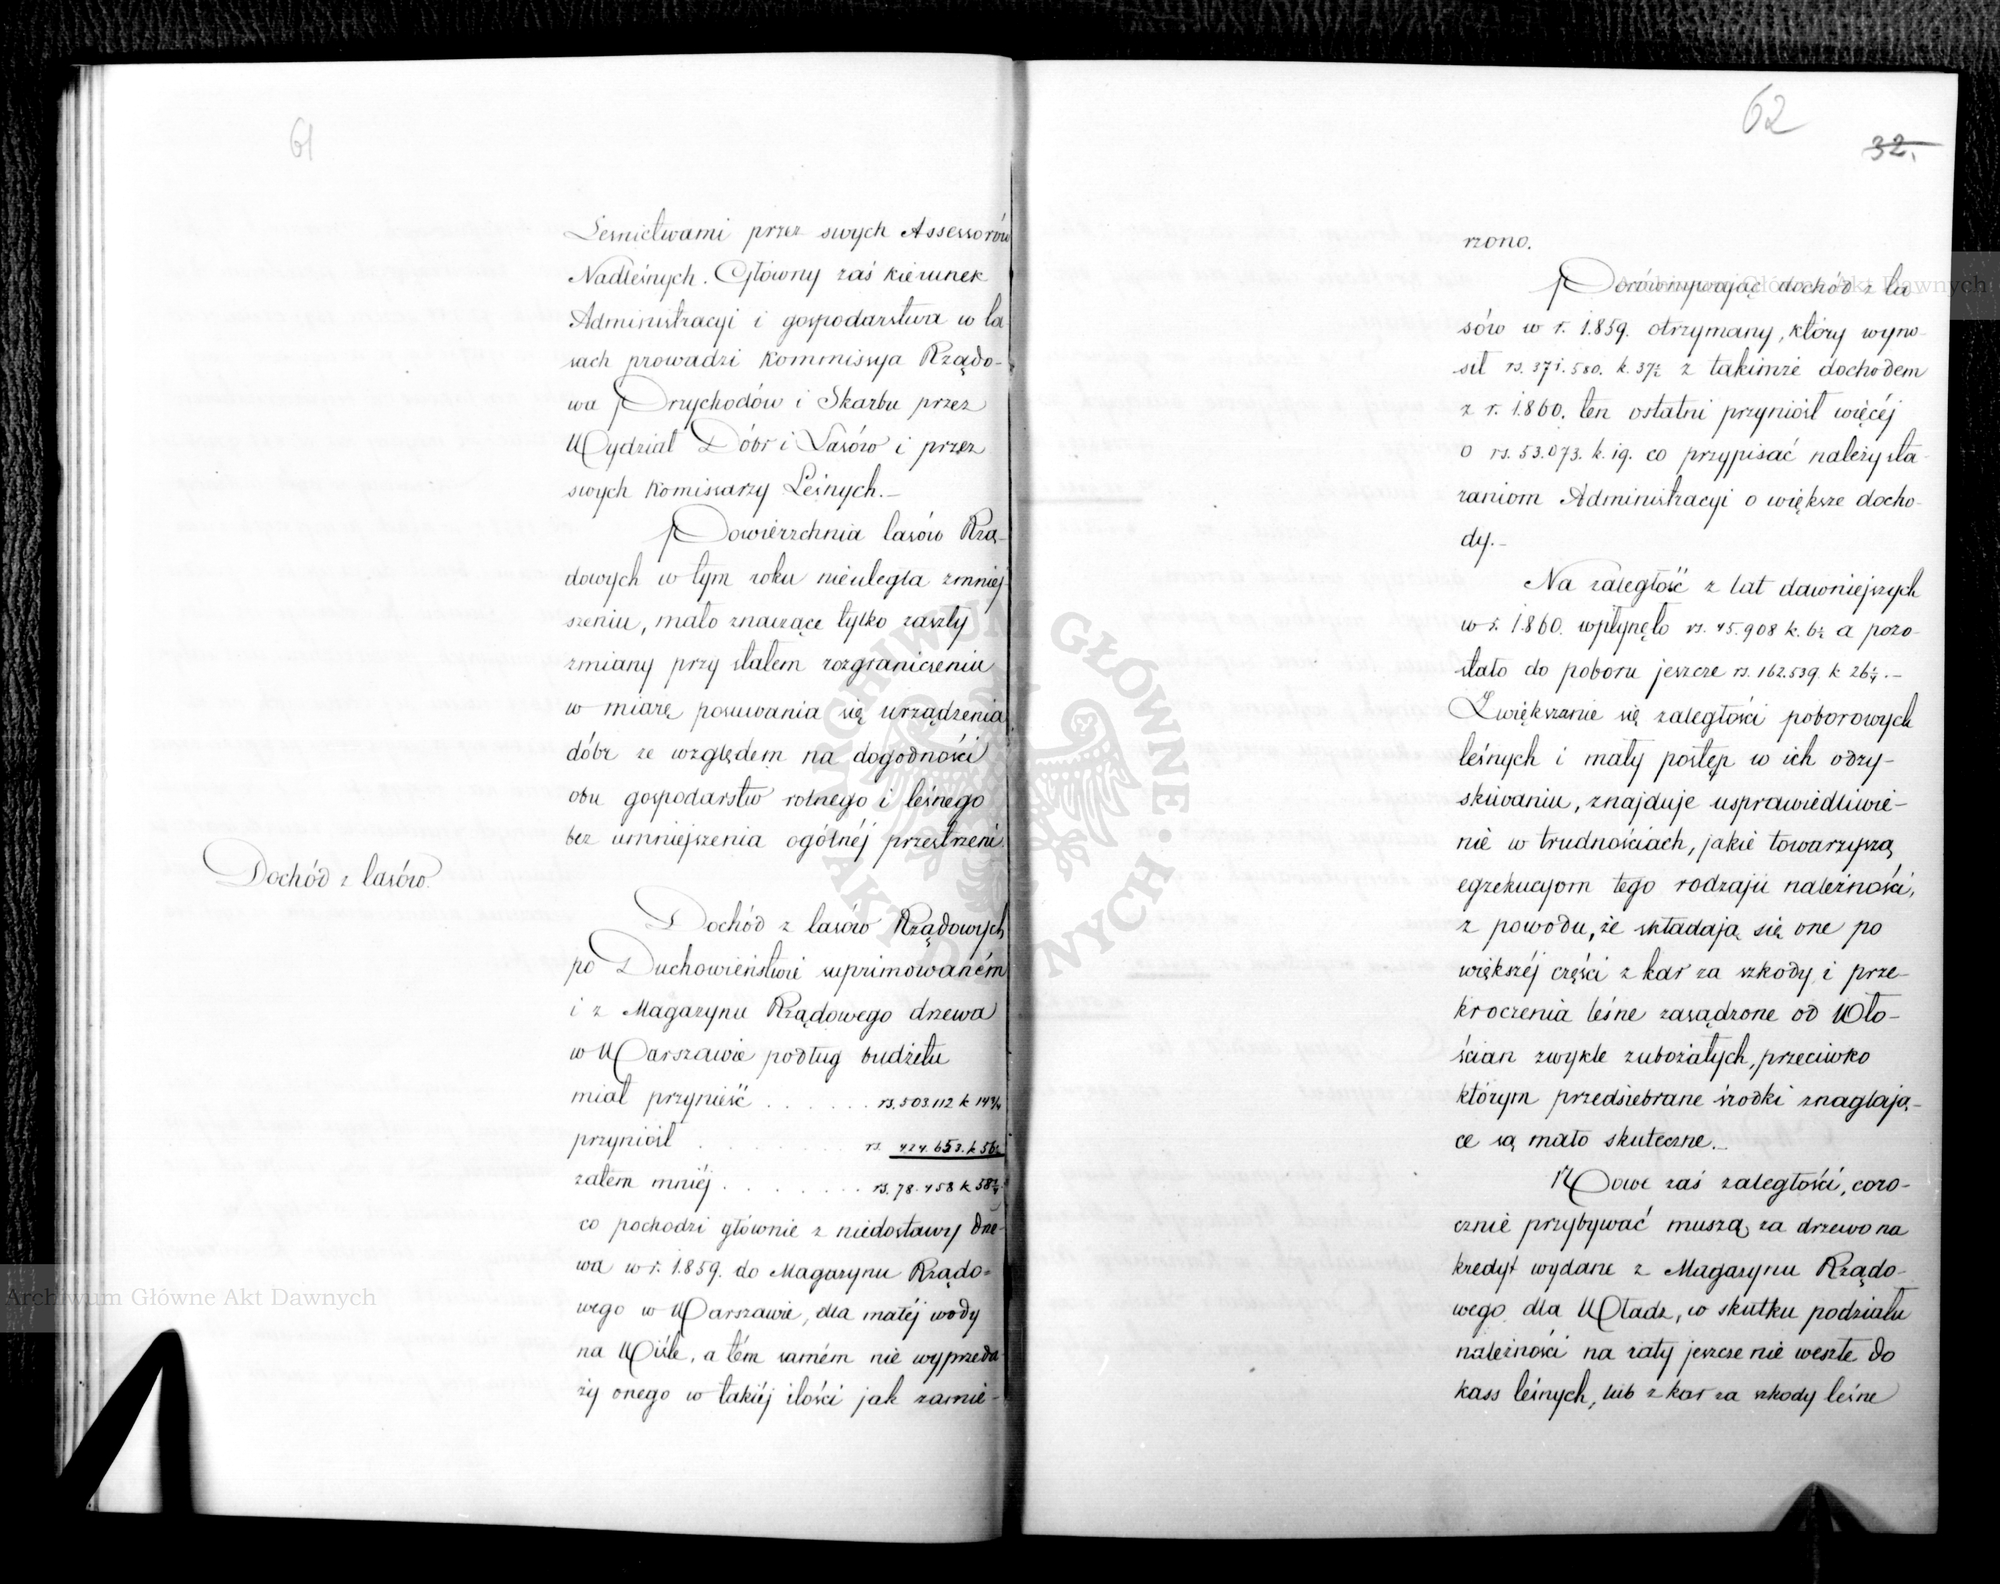 61
Leśnictwami przez swych Assessorów
Nadleśnych. Główny zaś kierunek
Administracyi i gospodarstwa w la-
sach prowadzi Kommissya Rządo-
wa Przychodów i Skarbu przez
Wydział Dóbr i Lasów i przez
swych Komissarzy Leśnych.–
Powierzchnia lasów Rzą-
dowych w tym roku nieuległa zmniej-
szeniu, mało znaczące tylko zaszły
zmiany przy stałem rozgraniczeniu
w miarę posuwania się urządzenia
dóbr ze względem na dogodności
obu gospodarstw rolnego i leśnego
bez umniejszenia ogólnéj przestrzeni.
Dochód z lasów.
Dochód z lasów Rządowych
po Duchowieństwie suprimowaném
i z Magazynu Rządowego drzewa
w Warszawie podług budżetu
miał przynieść . . . . . . rs. 503.112 k 14¾
przyniósł . . . . . . . rs. 424.653. k 56½
zatem mniéj . . . . . . . rs. 78.458 k 58¼
co pochodzi głównie z niedostawy drze-
wa w r. 1859. do Magazynu Rządo-
wego w Warszawie, dla małéj wody
na Wiśle, a tém samém nie wyprzeda-
ży onego w takiéj ilości jak zamie-
62
32.
rzono.
Porównywając dochód z la-
sów w r. 1859. otrzymany, który wyno-
sił rs. 371.580. k. 37½ z takimże dochodem
z r. 1860. ten ostatni przyniósł więcéj
o rs. 53.073. k. 19. co przypisać należy sta-
raniom Administracyi o większe docho-
dy.–
Na zaległość z lat dawniejszych
w r. 1860. wpłynęło rs. 45.908 k. 6½ a pozo-
stało do poboru jeszcze rs. 162.539 k 26¼.–
Zwiększanie się zaległości poborowych
leśnych i mały postęp w ich odzy-
skiwaniu, znajduje usprawiedliwie-
nie w trudnościach, jakie towarzyszą
egzekucyom tego rodzaju należności,
z powodu, że składają się one po
większéj części z kar za szkody i prze-
kroczenia leśne zasądzone od Wło-
ścian zwykle zubożałych, przeciwko
którym przedsiebrane środki znaglają-
ce są mało skuteczne.–
Nowe zaś zaległości, coro-
cznie przybywać muszą za drzewo na
kredyt wydane z Magazynu Rządo-
wego dla Władz, w skutku podziału
należności na raty jeszcze nie weszłe do
kass leśnych, lub z kar za szkody leśne
ARCHIWUM GŁÓWNE AKT DAWNYCH
Archiwum Główne Akt Dawnych
Archiwum Główne Akt Dawnych